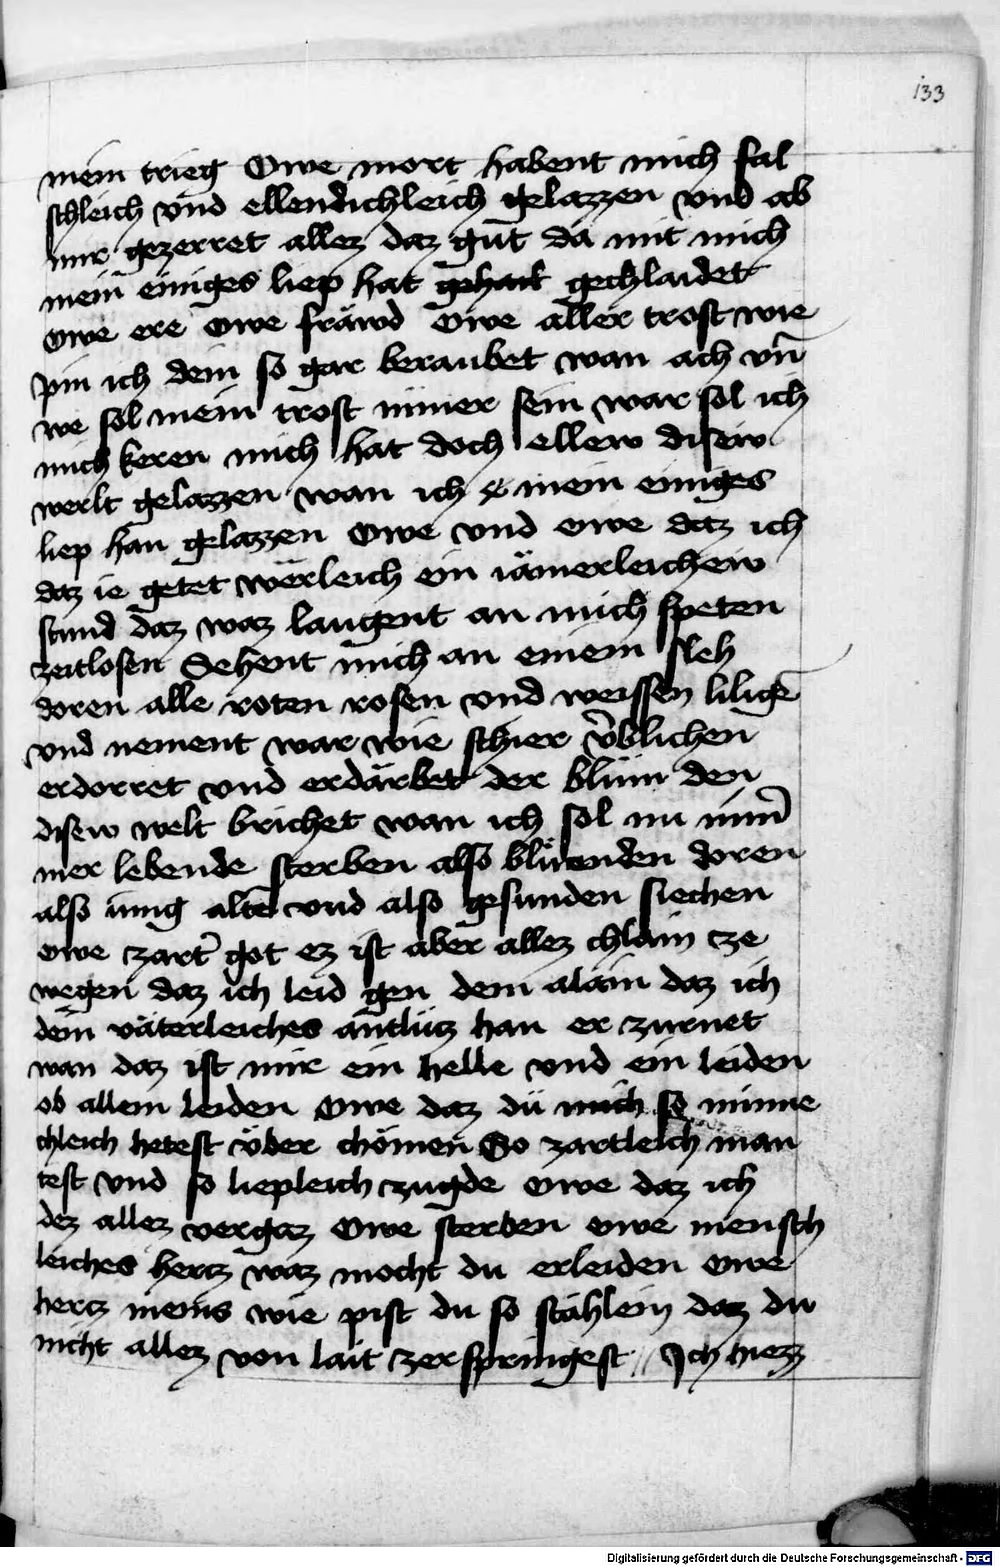 133
mein trieg Owe mort habent mich fal
schleich vnd ellendichleich gelazzen vnd ab
mir gezerret allez daz gut da mit mich
mein einiges liep hat gehait gechlaidet
owe ere owe fräwd owe aller trost wie
pin ich dein so gar beraubet wan ach vn̄
we sol mein trost nimer sein war sol ich
mich keren mich hat doch ellew disew
werlt gelazzen wan ich mein einiges
liep han gelazzen Owe vnd owe daz ich
daz ie getet wërleich ein iämerleichew
stund daz waz langent an mich speten
zeitlosen Sehent mich an einem sleh
doren alle roten rosen vnd weissen liligē
vnd nement war wie schier v̈blichen
erdorret vnd erdärbet der blüm den
disew welt brichet wan ich sol nu nim̄
mer lebende sterben also blüenden doren
also iung alten vnd also gesunden siechen
owe zart̓ got ez ist aber allez chlain cze
wegen daz ich leid gen dem aläin daz ich
dein väterleiches antlütz han er zurnet
wan daz ist mir ein helle vnd ein leiden
ob allem leiden Owe daz dü mich so minne
chleich hetest v̈ber chömen So zartleich man
test vnd so liepleich zugde owe daz ich
dez allez vergaz Owe sterben owe mensch
leiches hercz waz mocht du erleiden owe
hercz meins wie pist du so stählein daz du
nicht allez von lait zerspringest // Ich hiezz
Digitalisierung gefördert durch die Deutsche Forschungsgemeinschaft - DFG